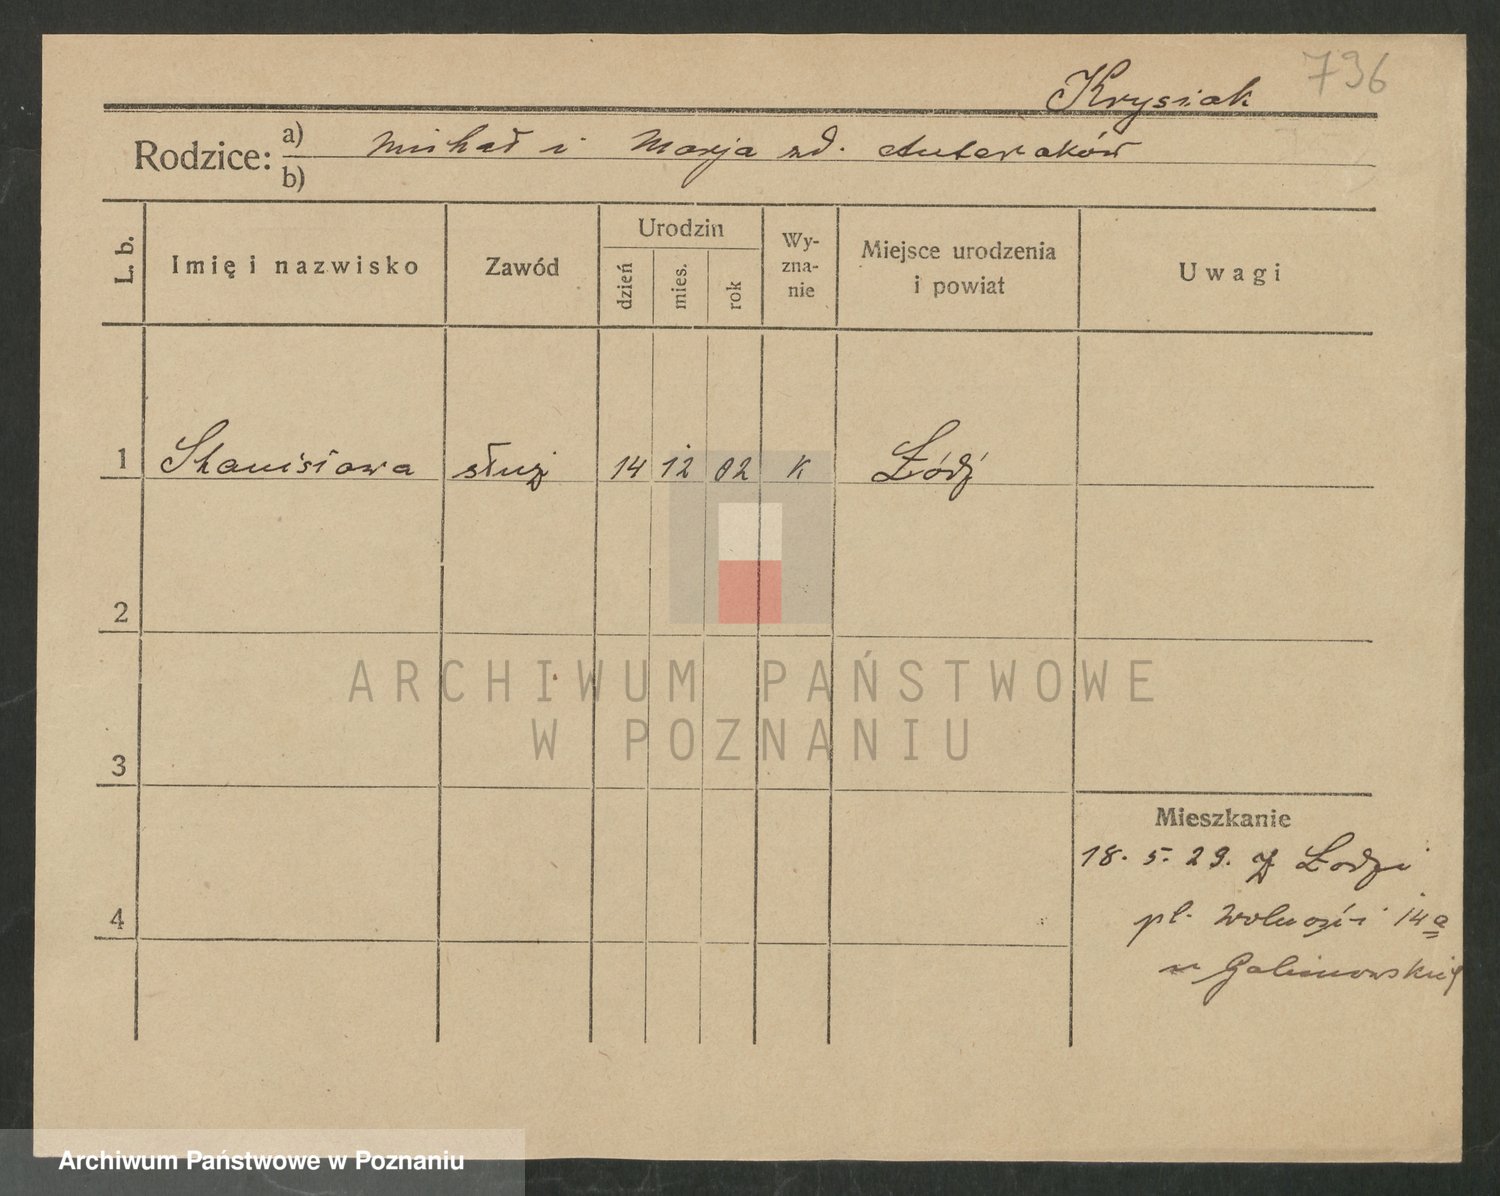 Krysiak 736
Rodzice: a) Michał i Marja zd.
b)
L. b. Imię i nazwisko Zawód Urodzin Wy-zna-nie Miejsce urodzenia i powiat Uwagi
dzień mies. rok
1 Stanisława służ 14 12 02 K Łódź
2
ARCHIWUM PAŃSTWOWE
W POZNANIU
3
Mieszkanie
18. 5. 29. z Łodzi
4 pl. Wolności 14a
Archiwum Państwowe w Poznaniu